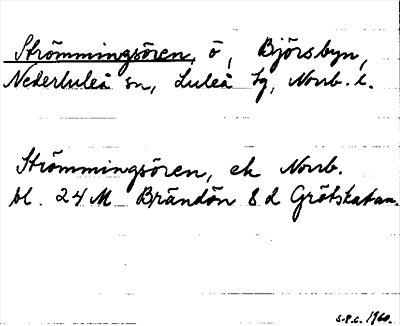 Strömmingsören, ö, Björsbyn,
Nederluleå sn, Luleå tg, Norrb. l.
Strömmingsören, ek Norrb.
bl. 24 M Brändön 8 d Gråtskatan.
S.P.C. 1960.